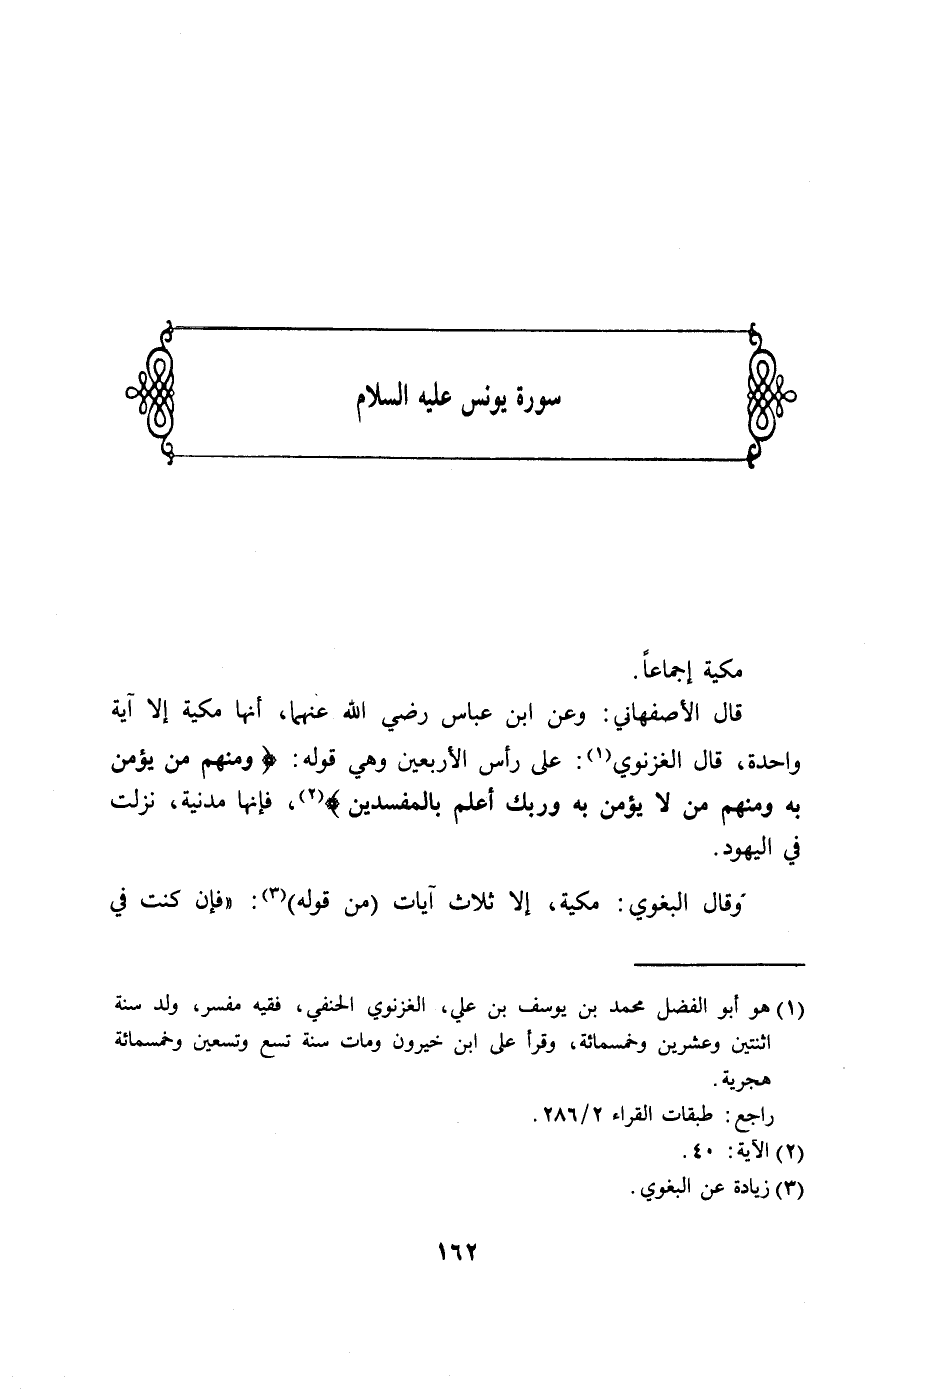 سورة يونس عليه السلام
مكية إجماعاً.
قال الأصفهاني: وعن ابن عباس رضي الله عنهما، أنها مكية إلا آية
واحدة، قال الغزنوي(١): على رأس الأربعين وهي قوله: ﴿ ومنهم من يؤمن
به ومنهم من لا يؤمن به وربك أعلم بالمفسدين ﴾(٢)، فإنها مدنية، نزلت
في اليهود.
وقال البغوي: مكية، إلا ثلاث آيات (من قوله)(٣): «فإن كنت في
(١) هو أبو الفضل محمد بن يوسف بن علي، الغزنوي الحنفي، فقيه مفسر، ولد سنة
اثنتين وعشرين وخمسمائة، وقرأ على ابن خيرون ومات سنة تسع وتسعين وخمسمائة
هجرية.
راجع: طبقات القراء ٢/ ٢٨٦.
(٢) الآية: ٤٠.
(٣) زيادة عن البغوي.
١٦٢